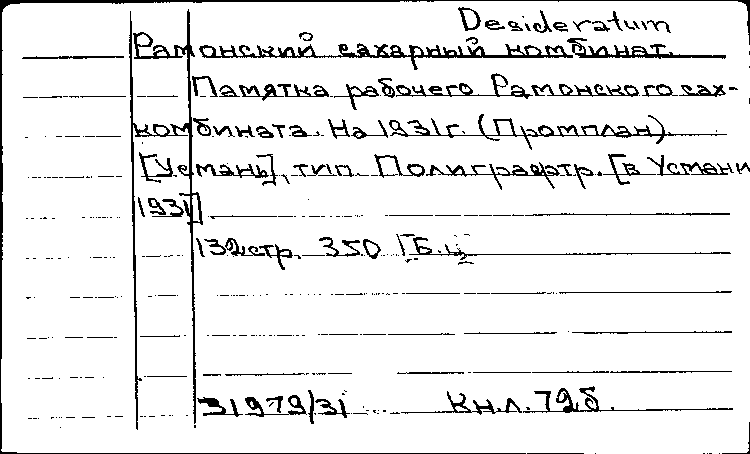 Desideratum
Рамонский сахарный комбинат.
Памятка рабочего Рамонского сах-
комбината. На 1931г. (Промплан).
[Усмань], тип. Полиграфтр. [в Усмани
1931].
132стр. 350 [Б.ц.
31979/31 Кн.л.72б.